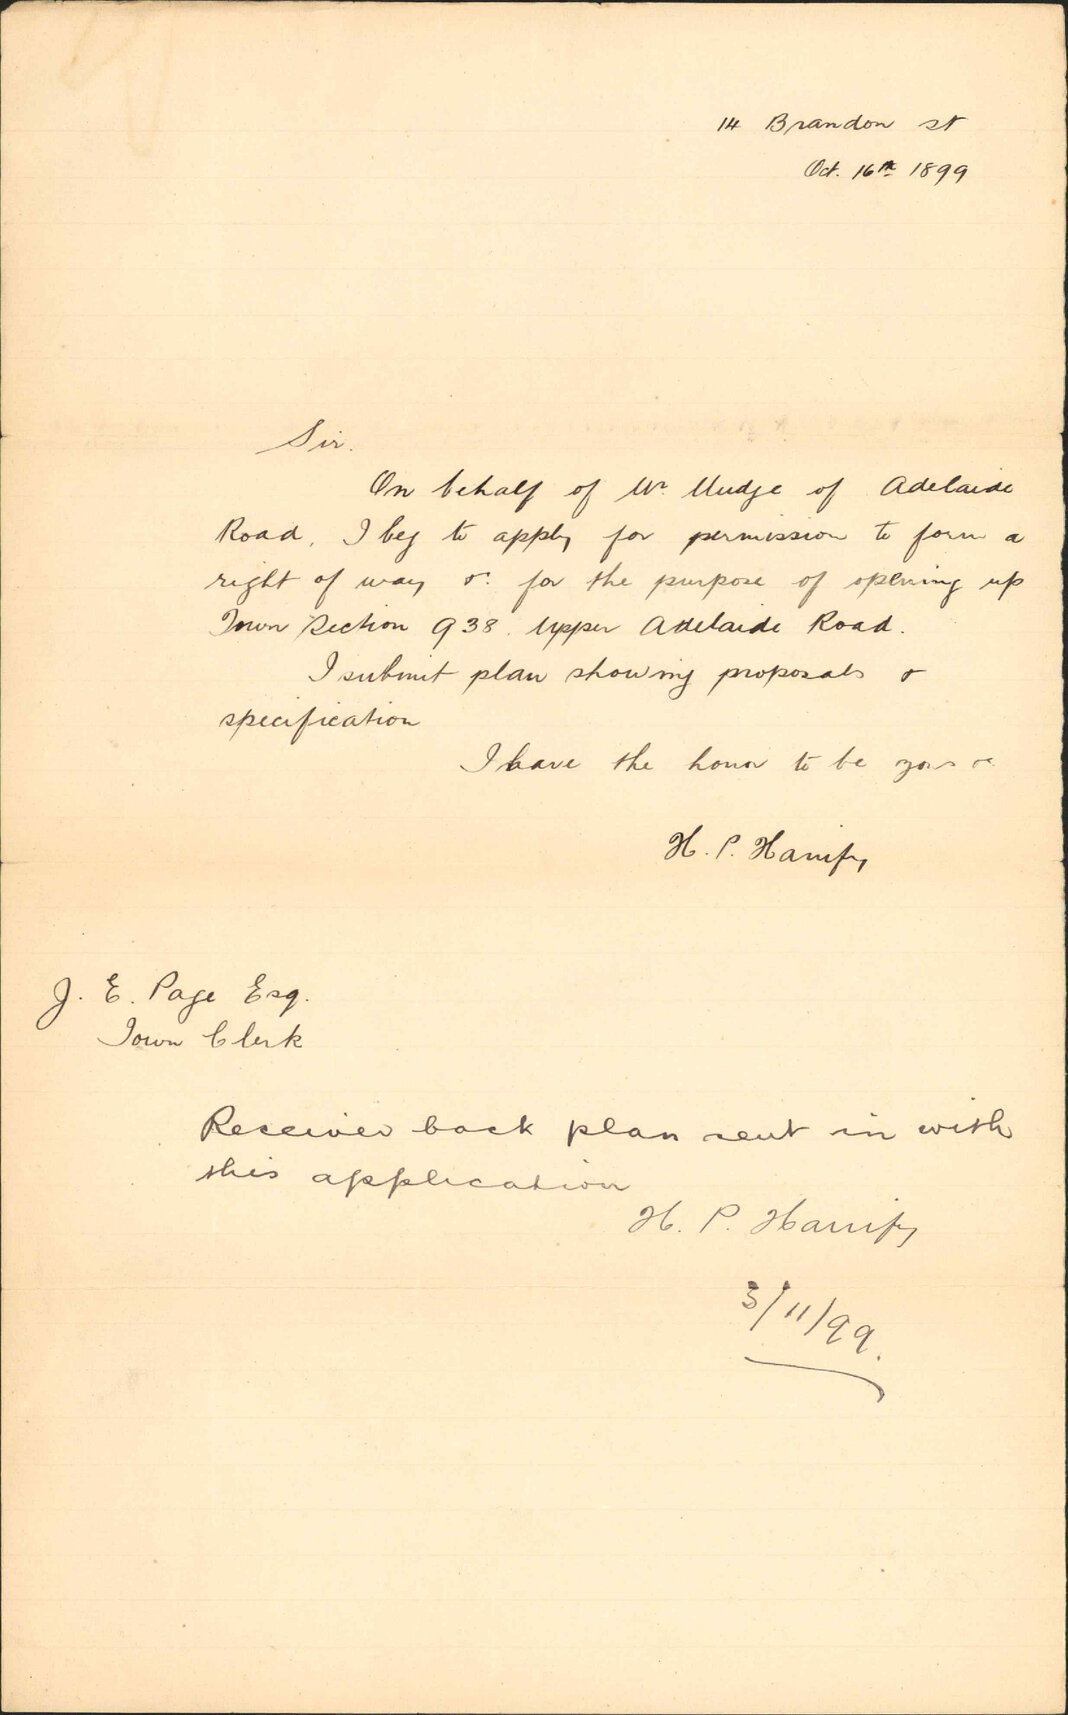 14 Brandon st
Oct. 16th 1899
Sir.
On behalf of Mr. Mudge of Adelaide
Road, I beg to apply for permission to form a
right of way &c. for the purpose of opening up
Town Section 938. Upper Adelaide Road.
I submit plan showing proposals &
specification
I have the honor to be yours &c
H. P. Hanify
J. E. Page Esq.
Town Clerk
Received back plan sent in with
this application
H. P. Hanify
3/11/99.